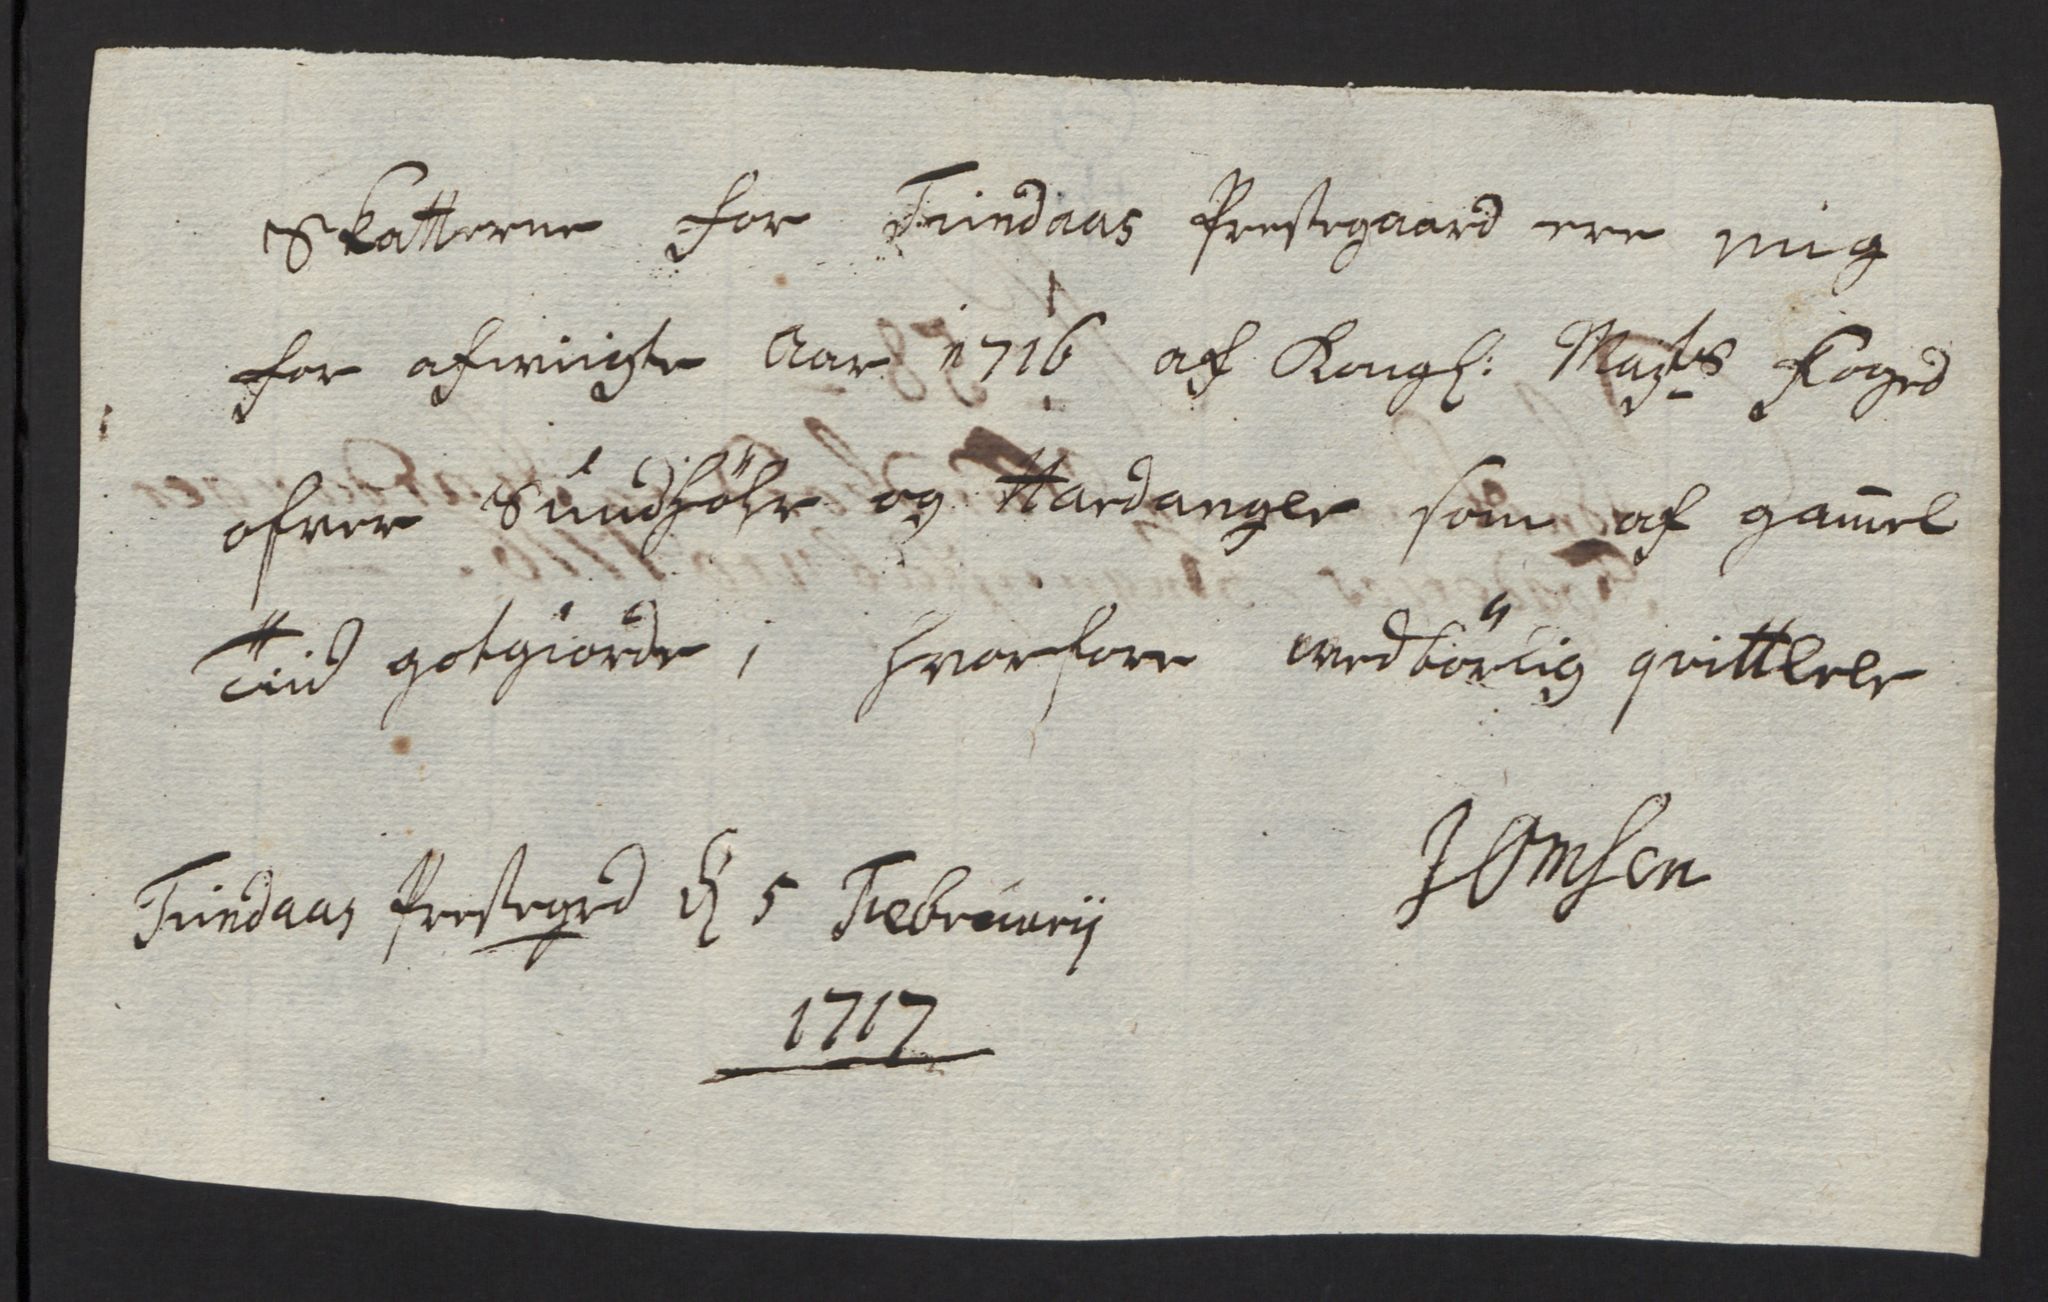 Skatterne for Fiindaas Prestegaard ere mig
for afvigte Aar 1716 af Kongl: Maÿts Foged
ofver Sundhöhr og Hardanger som af gam̄el
Tiid gotgiorde, hvorfore vedbörlig qvitterer
JOmsen
Fiindaas Prestegrd d 5 Februarij
1717